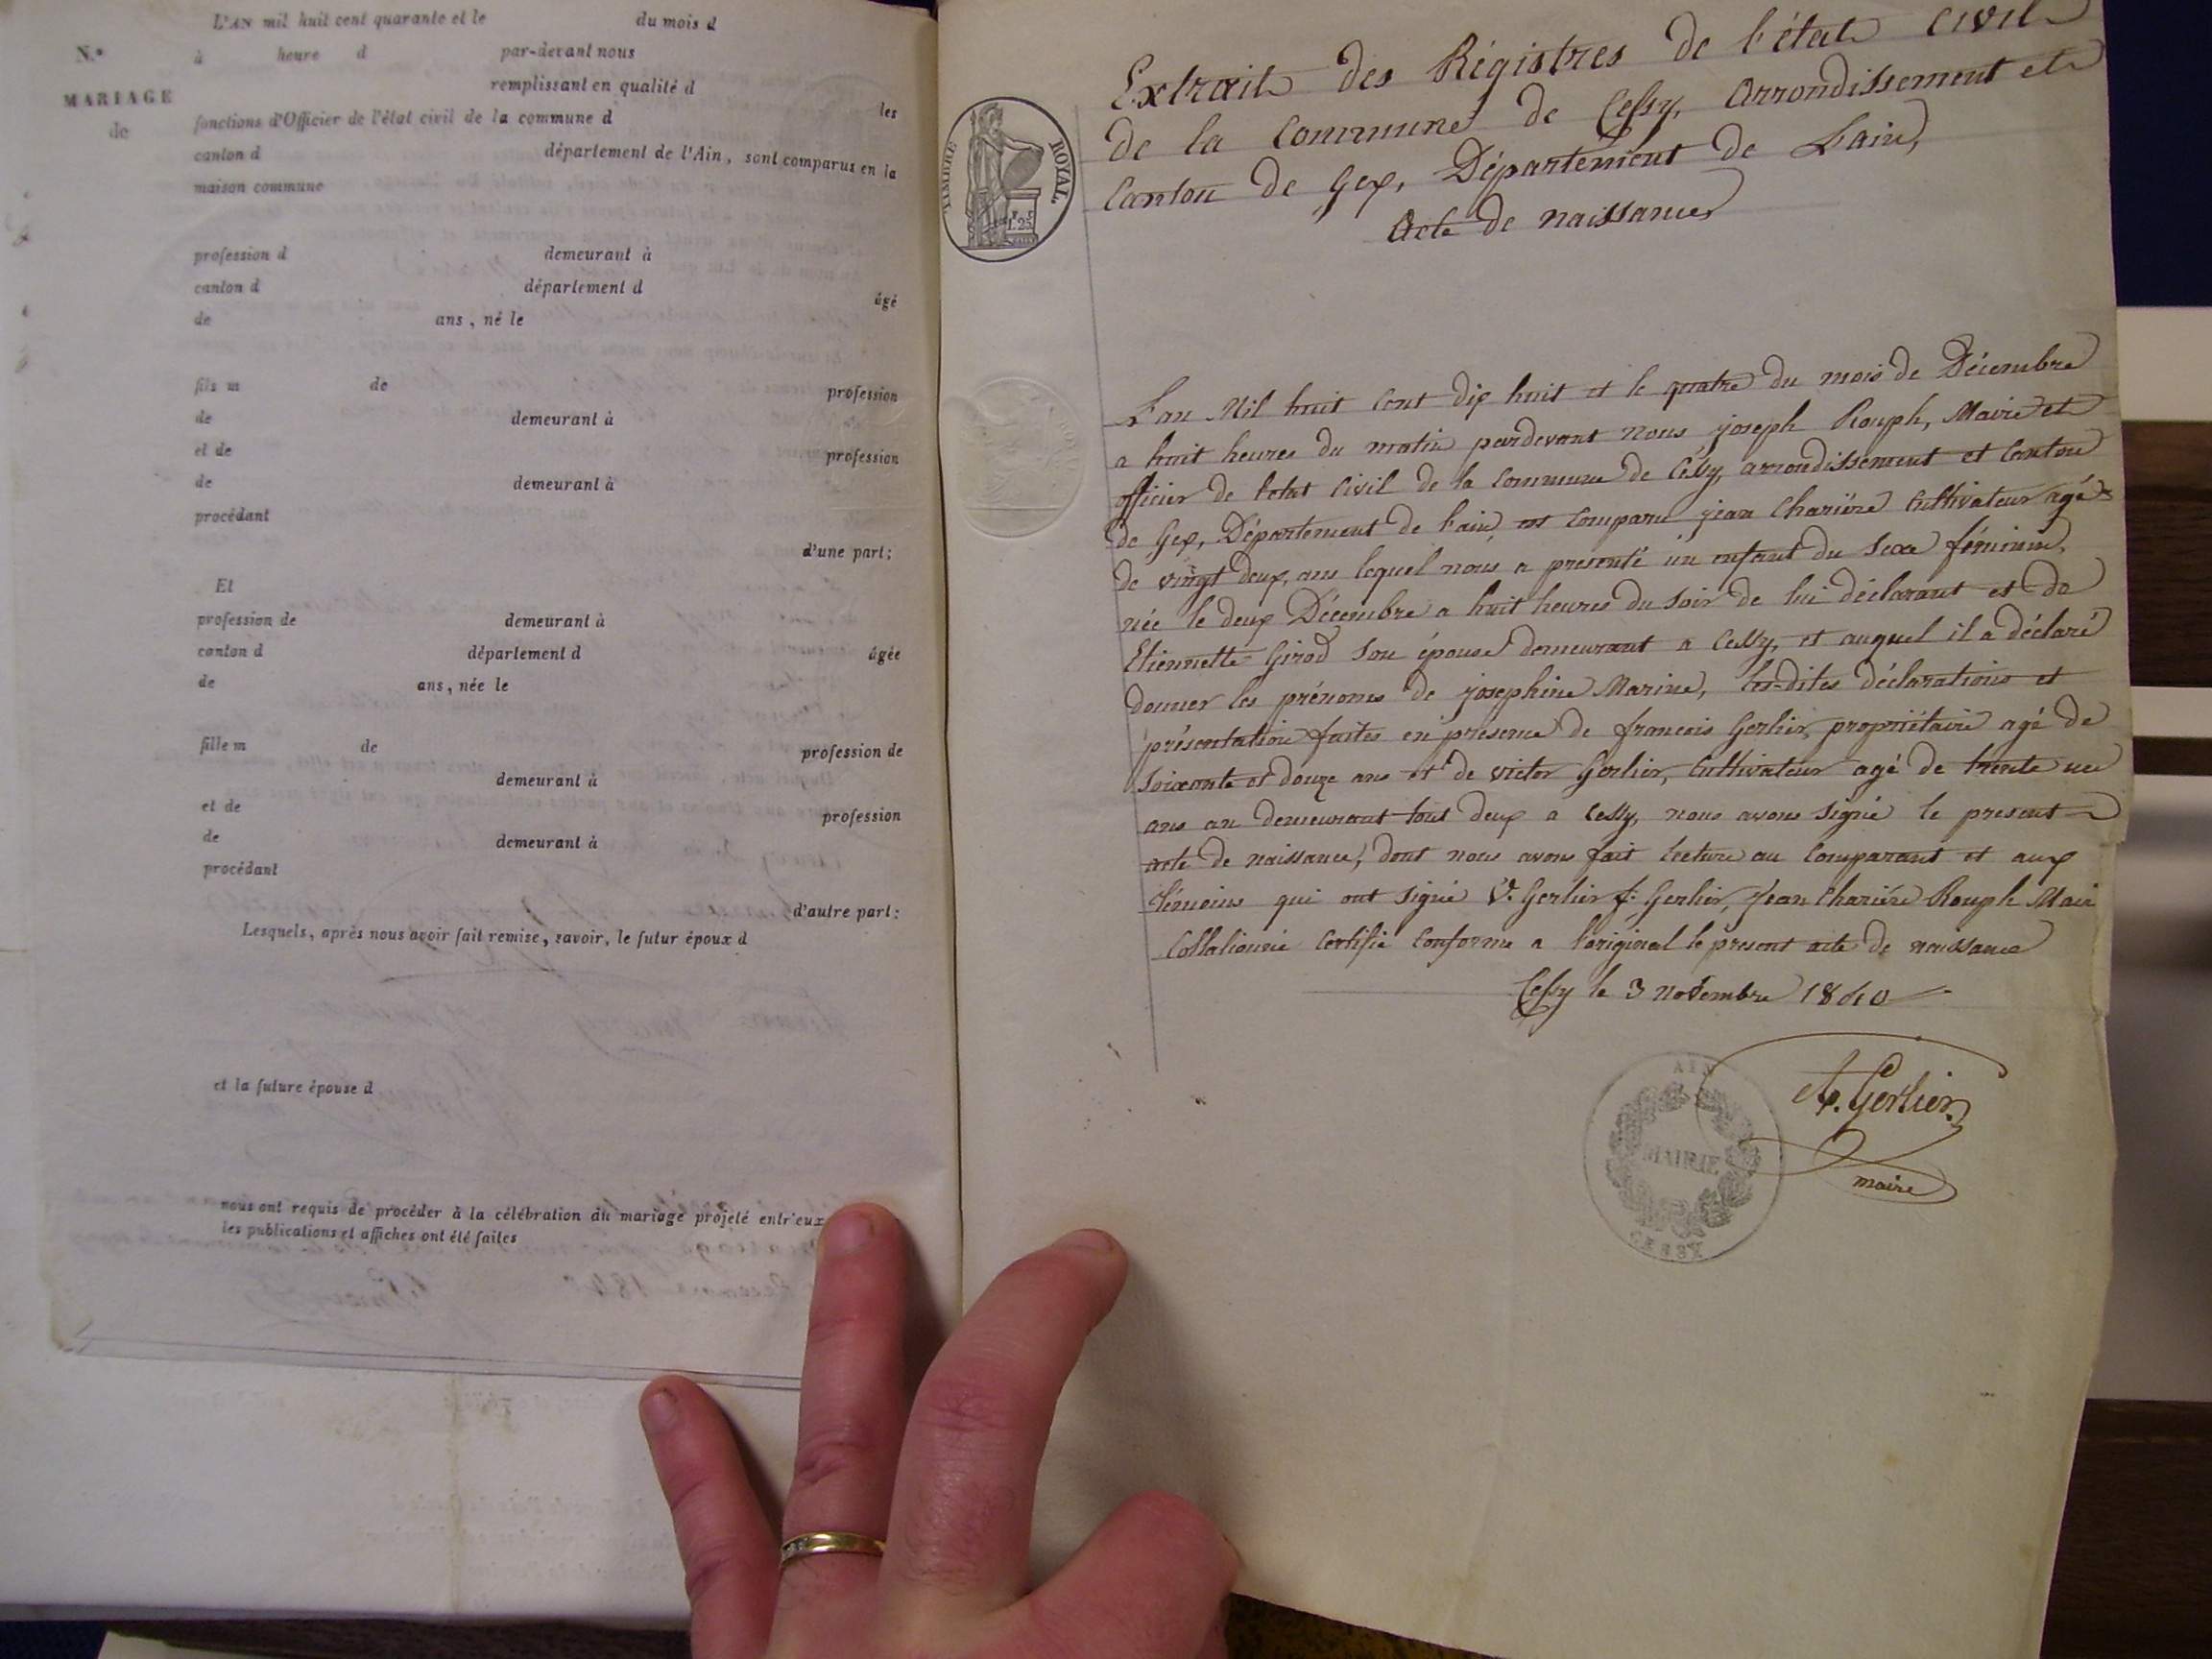 L'AN mil huit cent quarante et le du mois d
N.° à heure d par-devant nous
remplissant en qualité d
MARIAGE
de
fonctions d'Officier de l'état civil de la commune d les
canton d département de l'Ain, sont comparus en la
maison commune
profession d demeurant à
canton d département d âgé
de ans, né le
fils m de profession
de demeurant à
et de profession
de demeurant à
procédant
d'une part;
Et
profession de demeurant à
canton d département d âgée
de ans, née le
fille m de profession de
demeurant à
et de profession
de demeurant à
procédant
d'autre part:
Lesquels, après nous avoir fait remise, savoir, le futur époux d
et la future épouse d
nous ont requis de procéder à la célébration du mariage projeté entr'eux
les publications et affiches ont été faites
Extrait des Régistres de l'état Civil
de la Commune de Cessy, Arrondissement et
Canton de Gex, Département de L'ain,
Acte de naissance
TIMBRE ROYAL.
1.25
L'an Mil huit Cent dix huit et le quatre du mois de Décembre
a huit heures du matin pardevant nous joseph Rouph, Maire et
officier de l'etat Civil de la Commune de Cessy, arrondissement et Canton
de Gex, Département de l'ain, est Comparu jean Charière Cultivateur agé
de vingt deux, ans lequel nous a presenté un enfant du Sexe féminin,
née le deux Décembre a huit heures du Soir de lui déclarant et de
Etiennette Girod Son épouse demeurant a Cessy, et auquel il a déclaré
donner les prénoms de josephine Marine, les-dites déclarations et
présentation faites en presence de francois Gerlier, propriétaire agé de
Soixante et douze ans et de victor Gerlier, Cultivateur agé de trente un
ans an demeurant tout deux a Cessy, nous avons signé le present
acte de naissance, dont nous avons fait lecture au Comparant et aux
témoins qui ont signé V. Gerlier f. Gerlier, Jean Charière Rouph Mair
Collationné Certifié Conforme a l'original le présent acte de naissance
Cessy le 3 novembre 1840
Gerlier
maire
AIN
MAIRIE
CESSY